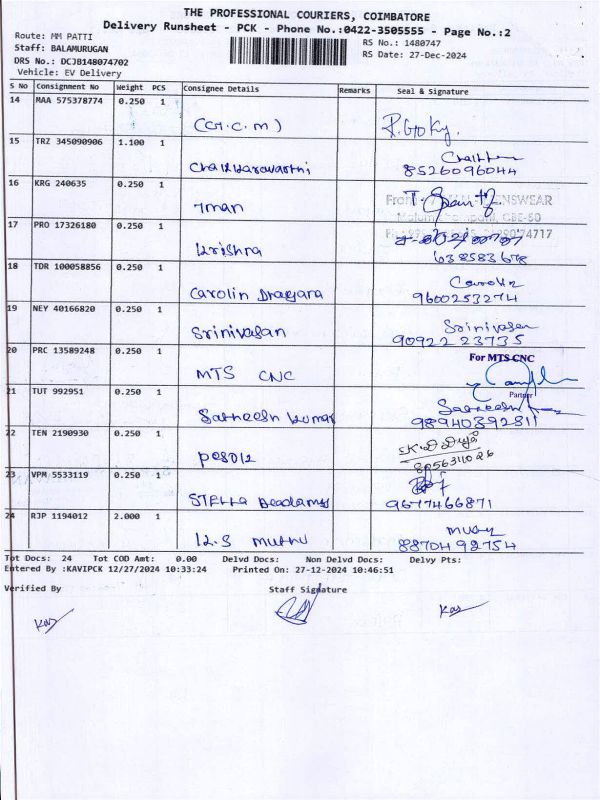 THE PROFESSIONAL COURIERS, COIMBATORE
Delivery Runsheet - PCK - Phone No.:0422-3505555 - Page No.:2
Route: MM PATTI
RS No.: 1480747
Staff: BALAMURUGAN
RS Date: 27-Dec-2024
DRS No.: DCJB148074702
Vehicle: EV Delivery
S No Consignment No Weight PCS Consignee Details Remarks Seal & Signature
14 MAA 575378774 0.250 1
(G.C.M)
15 TRZ 345090906 1.100 1
8526096044
16 KRG 240635 0.250 1
7man
17 PRO 17326180 0.250 1
Krishna
638583678
18 TDR 100058856 0.250 1
Carolin
9600253274
19 NEY 40166820 0.250 1
Srinivasan Srinivasan
90922 23735
20 PRC 13589248 0.250 1 For MTS CNC
MTS CNC
Partner
21 TUT 992951 0.250 1
Satheesh kumar Satheesh
9894039281
22 TEN 2190930 0.250 1
23 VPM 5533119 0.250 1
STELLA 9677466871
24 RJP 1194012 2.000 1
Muthu
8870492754
Tot Docs: 24 Tot COD Amt: 0.00 Delvd Docs: Non Delvd Docs: Delvy Pts:
Entered By :KAVIPCK 12/27/2024 10:33:24 Printed On: 27-12-2024 10:46:51
Verified By Staff Signature